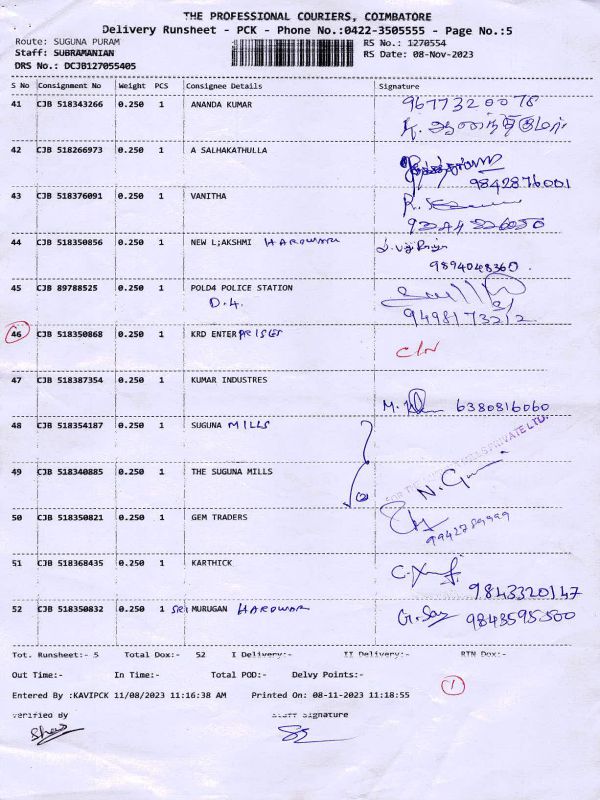 THE PROFESSIONAL COURIERS, COIMBATORE
Delivery Runsheet - PCK - Phone No.:0422-3505555 - Page No.:5
Route: SUGUNA PURAM RS No.: 1270554
Staff: SUBRAMANIAN RS Date: 08-Nov-2023
DRS No.: DCJB127055405
S No Consignment No Weight PCS Consignee Details Signature
41 CJB 518343266 0.250 1 ANANDA KUMAR 9677320078
42 CJB 518266973 0.250 1 A SALHAKATHULLA
9842876001
43 CJB 518376091 0.250 1 VANITHA
44 CJB 518350856 0.250 1 NEW L;AKSHMI HARDWARE
9894048360
45 CJB 89788525 0.250 1 POLD4 POLICE STATION
D.4. 9498173212
46 CJB 518350868 0.250 1 KRD ENTERPRISES
47 CJB 518387354 0.250 1 KUMAR INDUSTRES
6380816060
48 CJB 518354187 0.250 1 SUGUNA MILLS
49 CJB 518340885 0.250 1 THE SUGUNA MILLS
50 CJB 518350821 0.250 1 GEM TRADERS
9942789999
51 CJB 518368435 0.250 1 KARTHICK
9843320147
52 CJB 518350832 0.250 1 SRI MURUGAN HARDWAR 9843595500
Tot. Runsheet:- 5 Total Dox:- 52 I Delivery:- II Delivery:- RTN Dox:-
Out Time:- In Time:- Total POD:- Delvy Points:-
Entered By :KAVIPCK 11/08/2023 11:16:38 AM Printed On: 08-11-2023 11:18:55 1
Verified By Staff Signature